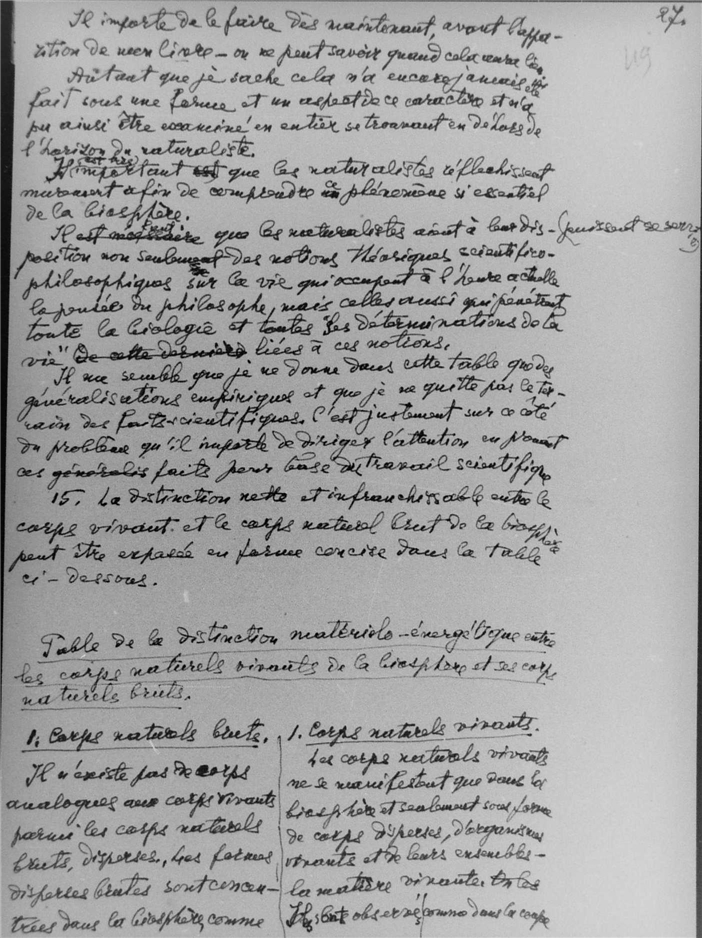 27.
49
Il importe de le faire dès maintenant, avant l'appa-
rition de mon livre – on ne peut savoir quand cela aura lieu
Autant que je sache cela n'a encore jamais été
fait sous une forme et un aspect de ce caractère et n'a
pu ainsi être examiné en entier se trouvant en dehors de
l'horison du naturaliste.
Il est très important est que les naturalistes réflechissent
murement afin de comprendre ce phénomène si essentiel
de la biosphère.
Il est nécessaire que les naturalistes aient à leur dis- (puissent se servir
position non seulement des notions théoriques scientifico-
philosophiques sur la vie qui occupent à l'heure actuelle
la pensée du philosophe, mais celles aussi qui pénètrent
toute la biologie et toutes "les déterminations de la
vie" de cette dernière liées à ces notions.
Il me semble que je ne donne dans cette table que des
généralisations empiriques et que je ne quitte pas le ter-
rain des faits scientifiques. C'est justement sur ce côté
du problème qu'il importe de diriger l'attention en prenant
ces généralis faits pour base du travail scientifique
15. La distinction nette et infranchissable entre le
corps vivant et le corps naturel brut de la biosphère
peut être exposée en forme concise dans la table
ci-dessous.
Table de la distinction matérielo-énergétique entre
les corps naturels vivants de la biosphère et ses corps
naturels bruts.
1. Corps naturels bruts.
Il n'existe pas de corps
analogues aux corps vivants
parmi les corps naturels
bruts, disperses. Les formes
disperses brutes sont concen-
trées dans la biosphère, comme
1. Corps naturels vivants.
Les corps naturels vivants
ne se manifestent que dans la
biosphère et seulement sous forme
de corps disperses, d'organismes
vivants et de leurs ensembles –
la matière vivante. les
observés comme dans la coupe